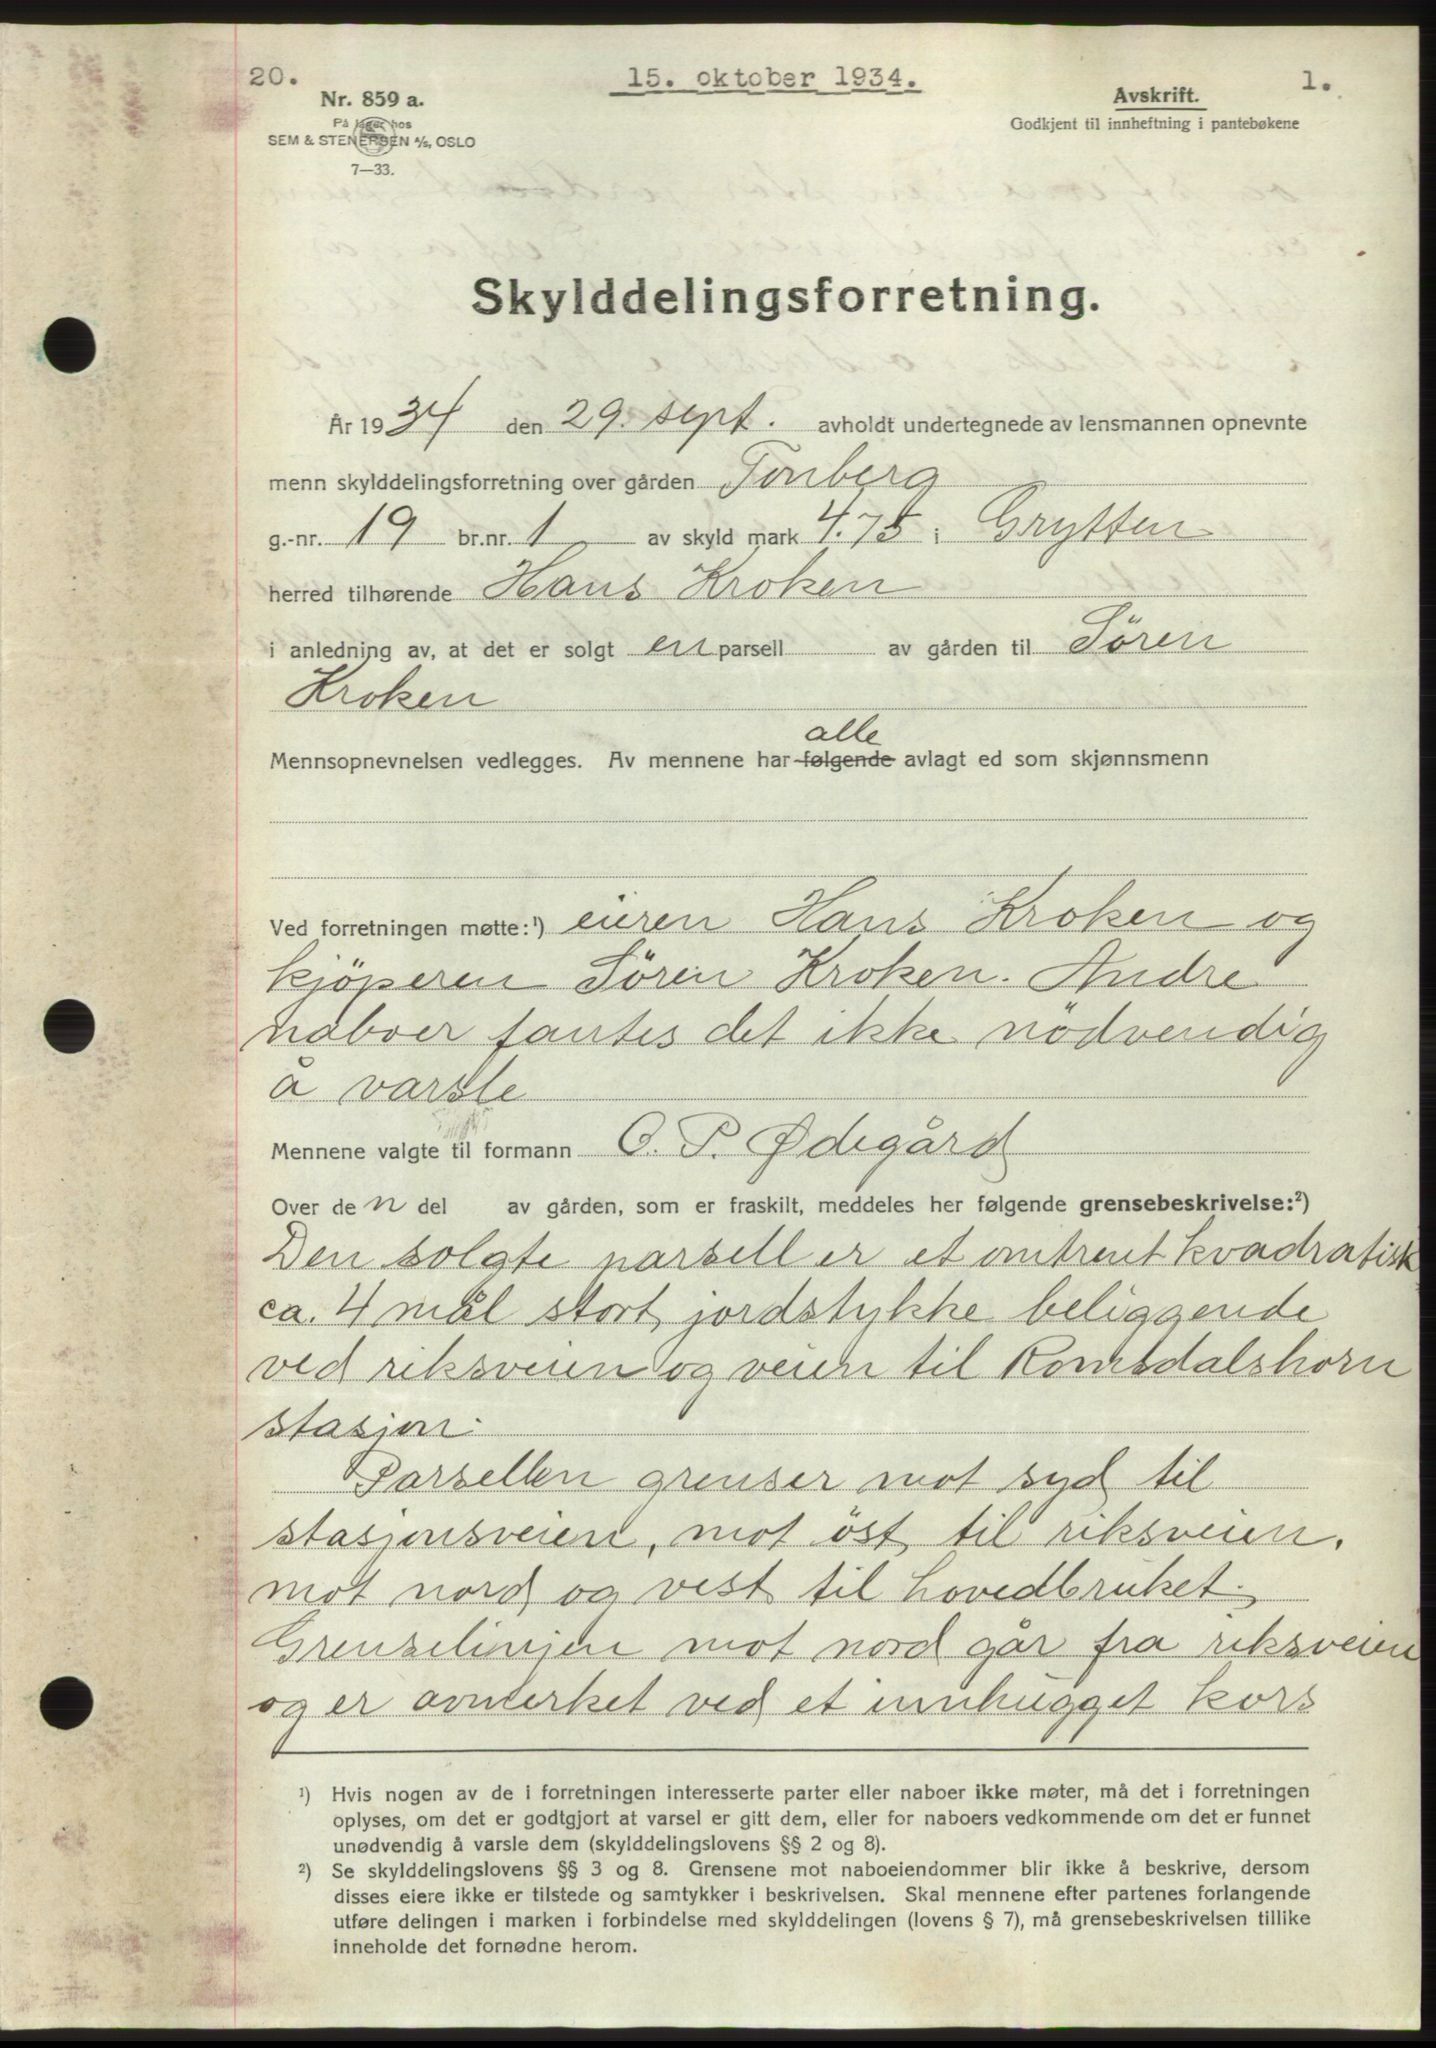 20.
15. oktober 1934.
1.
Nr. 859 a.
På lager hos
SEM & STENERSEN A/S, OSLO
7—33.
Avskrift.
Godkjent til innheftning i pantebøkene
Skylddelingsforretning.
År 1934 den 29. sept. avholdt undertegnede av lensmannen opnevnte
menn skylddelingsforretning over gården Tonberg
g.-nr. 19 br.nr. 1 av skyld mark 4.75 i Grytten
herred tilhørende Hans Kroken
i anledning av, at det er solgt en parsell av gården til Sören
Kroken
alle
Mennsopnevnelsen vedlegges. Av mennene har følgende avlagt ed som skjønnsmenn
Ved forretningen møtte:¹) eieren Hans Kroken og
kjöperen Sören Kroken. Andre
naboer fantes det ikke nödvendig
å varsle
Mennene valgte til formann O. P. Ødegård
Over den del av gården, som er fraskilt, meddeles her følgende grensebeskrivelse:²)
Den solgte parsell er et omtrent kvadratisk
ca. 4 mål stort jordstykke beliggende
ved riksveien og veien til Romsdalshorn
stasjon.
Parsellen grenser mot syd til
stasjonsveien, mot öst til riksveien,
mot nord og vest til hovedbruket.
Grenselinjen mot nord går fra riksveien
og er avmerket ved et innhugget kors
¹) Hvis nogen av de i forretningen interesserte parter eller naboer ikke møter, må det i forretningen
oplyses, om det er godtgjort at varsel er gitt dem, eller for naboers vedkommende om det er funnet
unødvendig å varsle dem (skylddelingslovens §§ 2 og 8).
²) Se skylddelingslovens §§ 3 og 8. Grensene mot naboeiendommer blir ikke å beskrive, dersom
disses eiere ikke er tilstede og samtykker i beskrivelsen. Skal mennene efter partenes forlangende
utføre delingen i marken i forbindelse med skylddelingen (lovens § 7), må grensebeskrivelsen tillike
inneholde det fornødne herom.